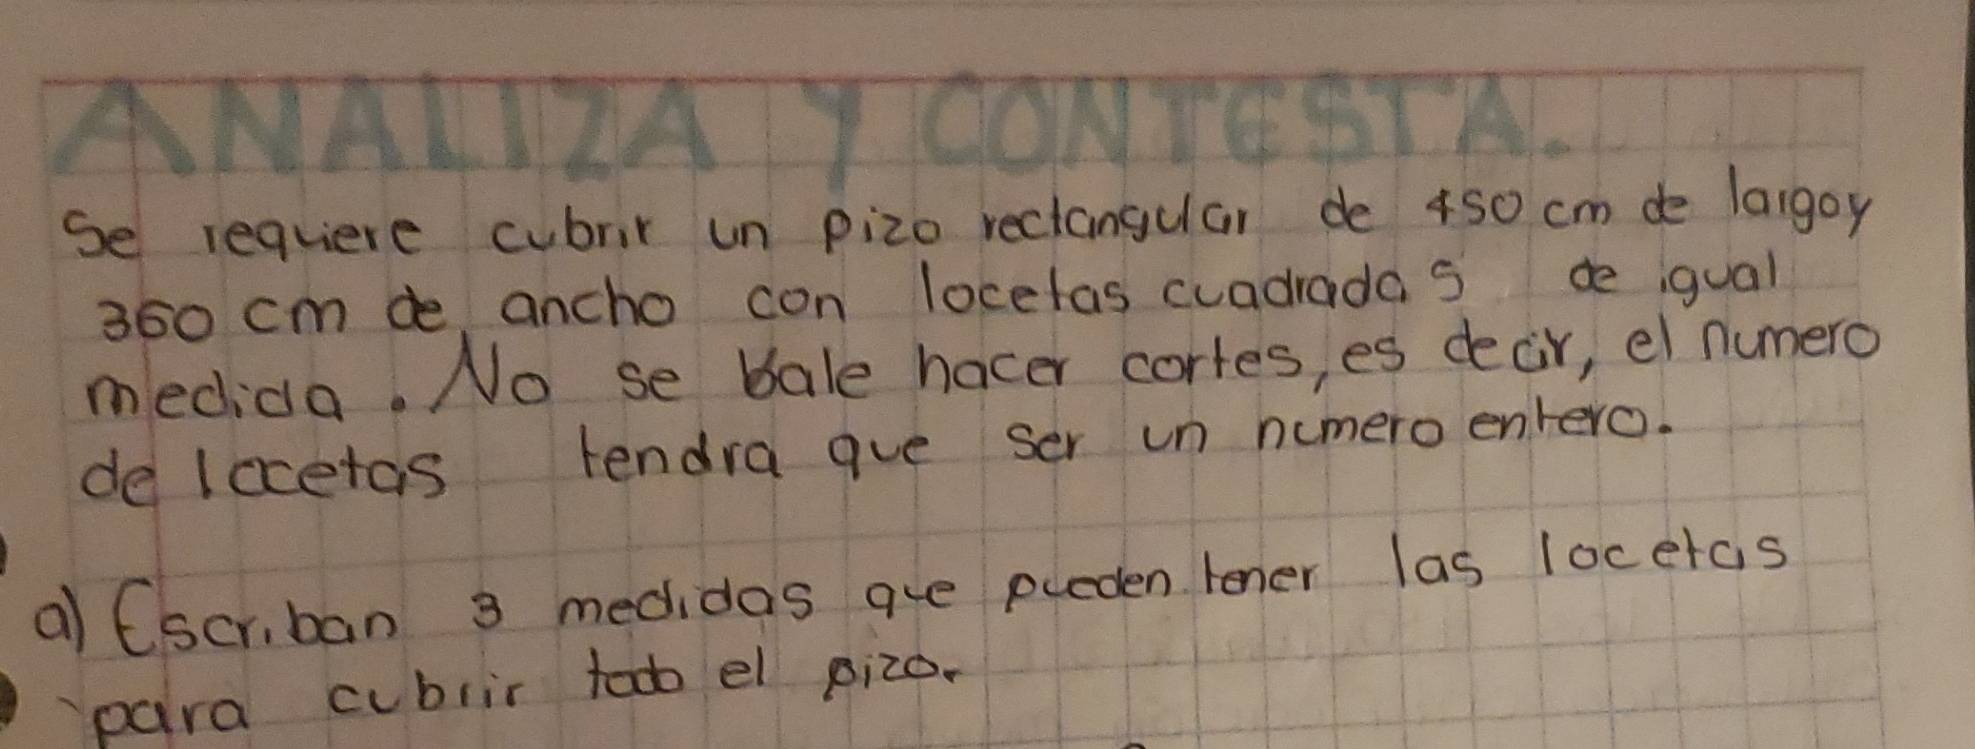 ANALIZA Y CONTESTA.
Se requiere cubrir un pizo rectangular de 450 cm de largo y
360 cm de ancho con locetas cuadradas de igual
medida. No se bale hacer cortes, es decir, el numero
de locetas tendra que ser un numero entero.
a) Escriban 3 medidas que pueden tener las locetas
para cubrir todo el pizo.